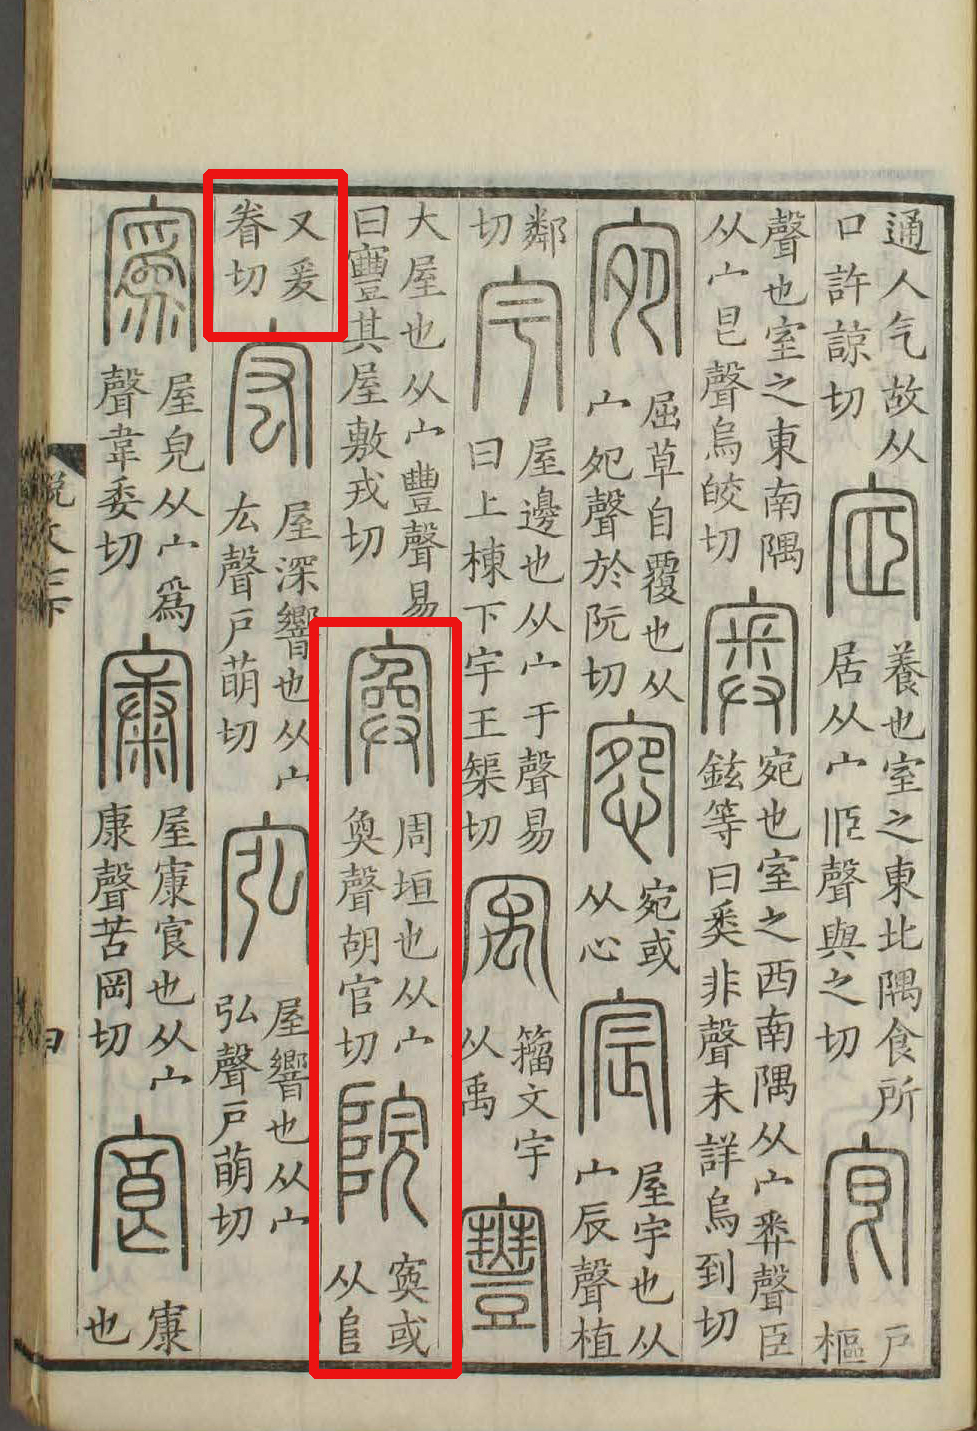 通人气故从口許諒切宧養也室之東北隅食所居从宀𦣞聲與之切㝔戶樞
聲也室之東南隅从宀㫐聲烏皎切奧宛也室之西南隅从宀𢍏聲臣鉉等曰𢍏非聲未詳烏到切
宛屈草自覆也从宀夗聲於阮切惌宛或从心宸屋宇也从宀辰聲植
鄰切宇屋邊也从宀于聲易曰上棟下宇王榘切㝢籒文宇从禹寷
大屋也从宀豐聲易曰寷其屋敷戎切寏周垣也从宀奐聲胡官切院寏或从𨸏
又爰眷切宏屋深響也从宀厷聲戶萌切𡧻屋響也从宀弘聲戶萌切
寪屋皃从宀爲聲韋委切㝩屋㝩㝗也从宀康聲苦岡切㝗㝩也
說文七下